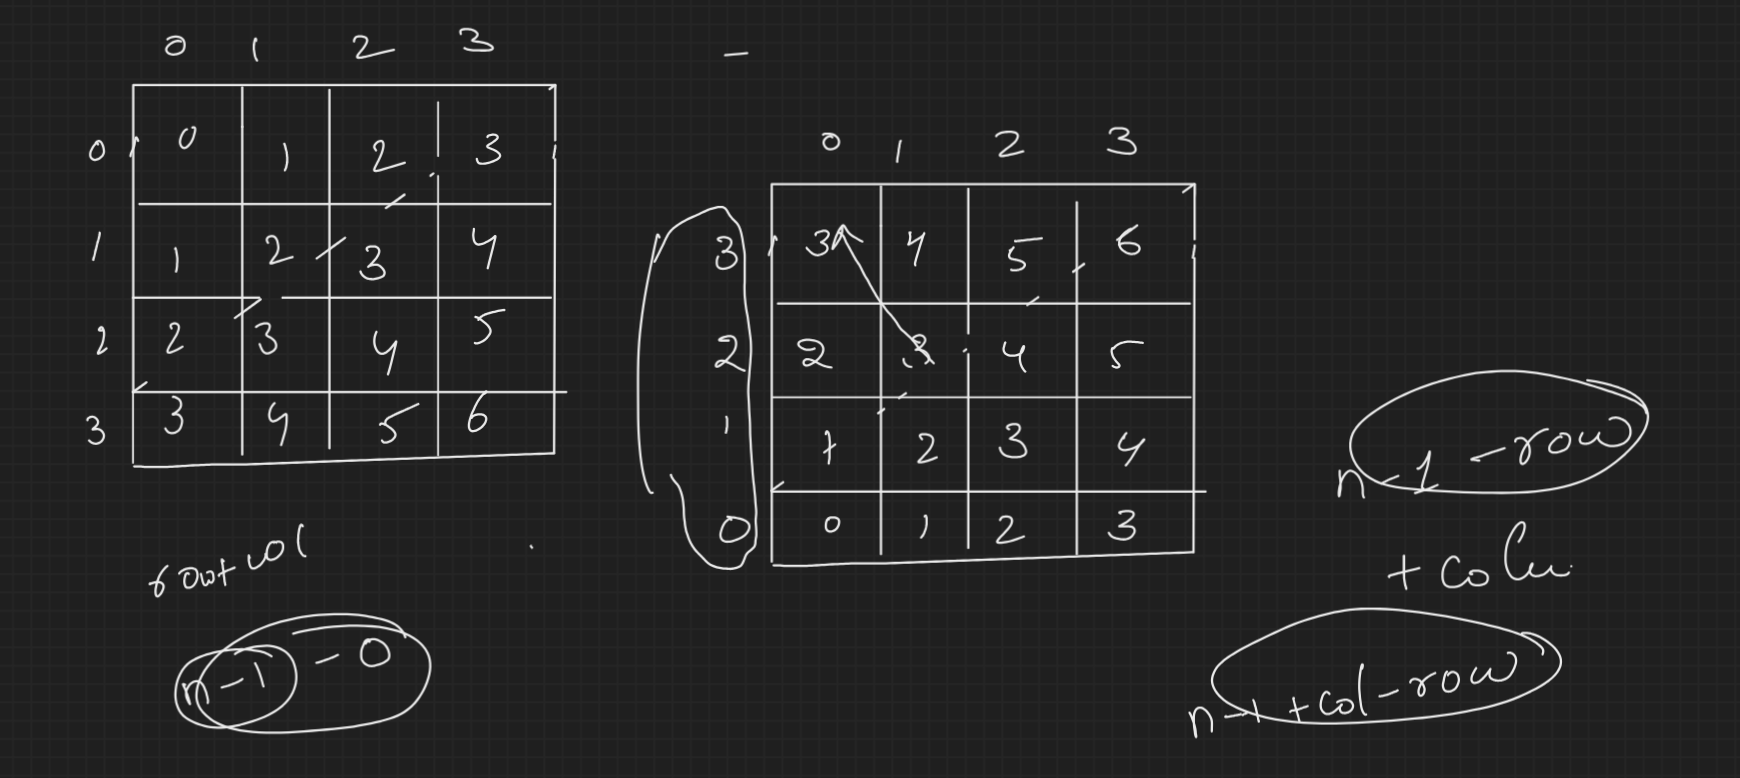 0 1 2 3
0 0 1 2 3
1 1 2 3 4
2 2 3 4 5
3 3 4 5 6
row+col
n-1 - 0
-
0 1 2 3
3 3 4 5 6
2 2 3 4 5
1 1 2 3 4
0 0 1 2 3
n-1 -row
+
n-1 +col-row